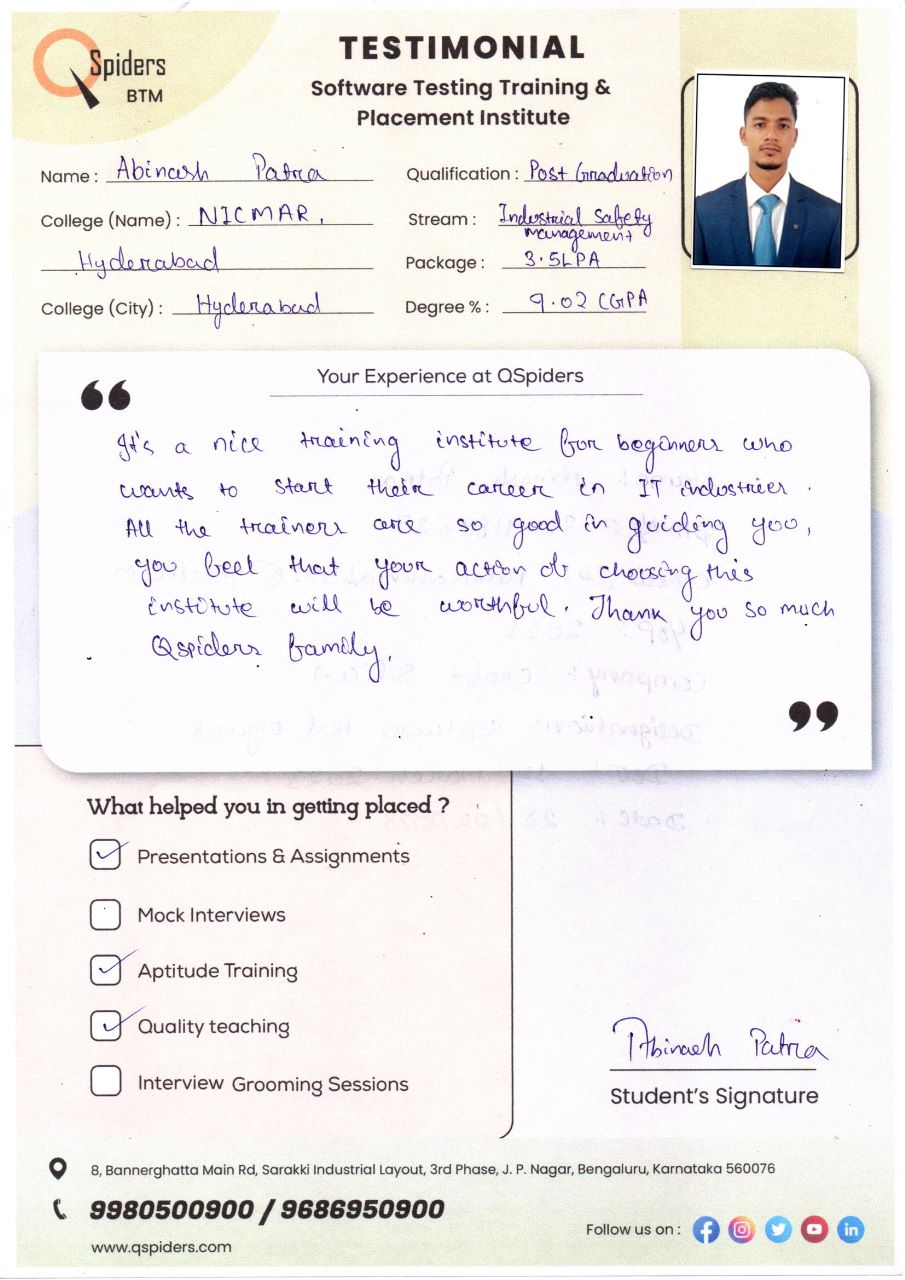 QSpiders
BTM
TESTIMONIAL
Software Testing Training &
Placement Institute
Name : Abinash Patra
Qualification : Post Graduation
College (Name) : NICMAR,
Hyderabad
Stream : Industrial Safety
management
Package : 3.5LPA
College (City) : Hyderabad
Degree % : 9.02 CGPA
Your Experience at QSpiders
It's a nice training institute for beginners who
wants to start their career in IT industries.
All the trainers are so good in guiding you,
you feel that your action of choosing this
institute will be worthful. Thank you so much
Qspiders family.
What helped you in getting placed ?
Presentations & Assignments
Mock Interviews
Aptitude Training
Quality teaching
Interview Grooming Sessions
Abinash Patra
Student's Signature
8, Bannerghatta Main Rd, Sarakki Industrial Layout, 3rd Phase, J. P. Nagar, Bengaluru, Karnataka 560076
9980500900 / 9686950900
www.qspiders.com
Follow us on :